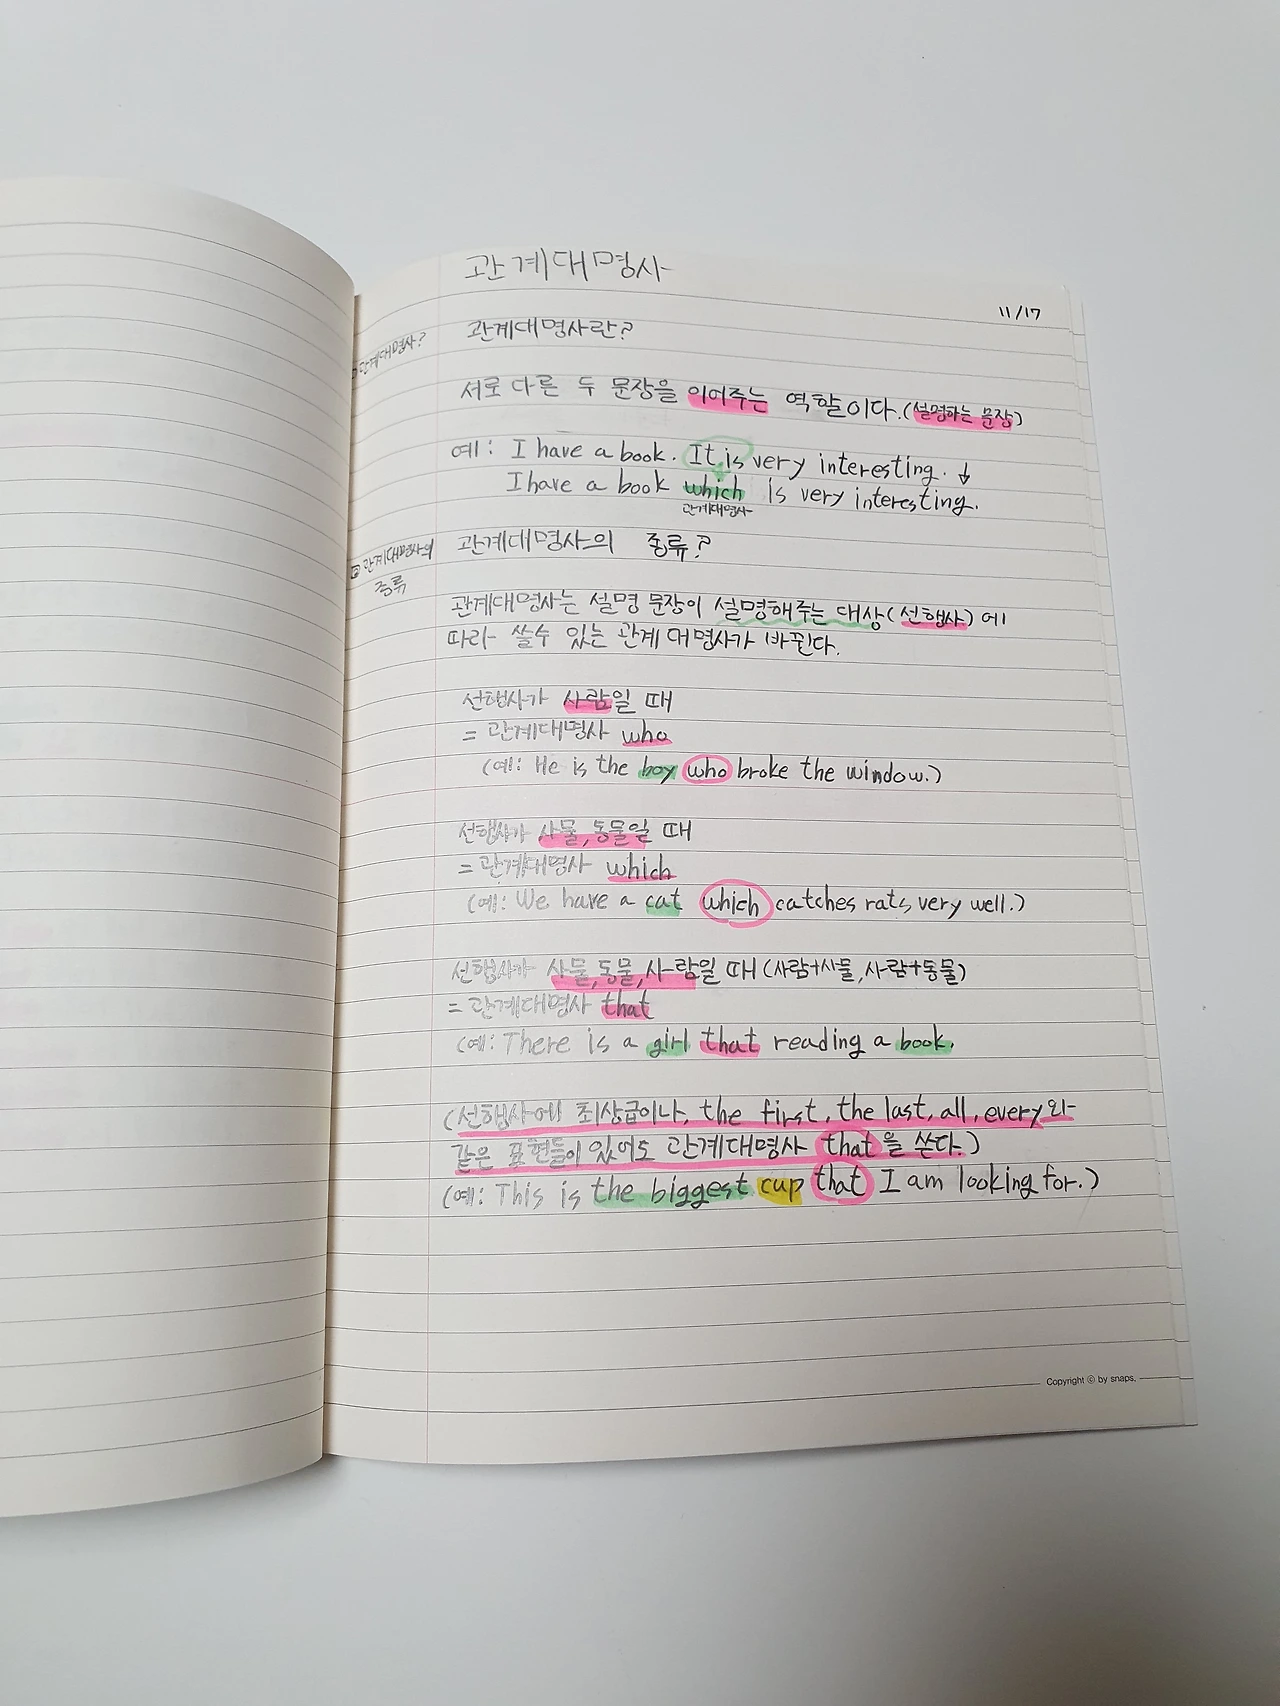 관계대명사
11/17
관계대명사?
관계대명사란?
서로 다른 두 문장을 이어주는 역할이다.(설명하는 문장)
예: I have a book. It is very interesting. ↓
I have a book which is very interesting.
관계대명사
② 관계대명사의
종류
관계대명사의 종류?
관계대명사는 설명 문장이 설명해주는 대상(선행사)에
따라 쓸수 있는 관계대명사가 바뀐다.
선행사가 사람일 때
= 관계대명사 who
(예: He is the boy who broke the window.)
선행사가 사물,동물일 때
= 관계대명사 which
(예: We have a cat which catches rats very well.)
선행사가 사물,동물,사람일 때 (사람+사물,사람+동물)
= 관계대명사 that
(예: There is a girl that reading a book.
(선행사에 최상급이나, the first, the last, all, every와
같은 표현들이 있어도 관계대명사 that을 쓴다.)
(예: This is the biggest cup that I am looking for.)
Copyright ⓒ by snaps.